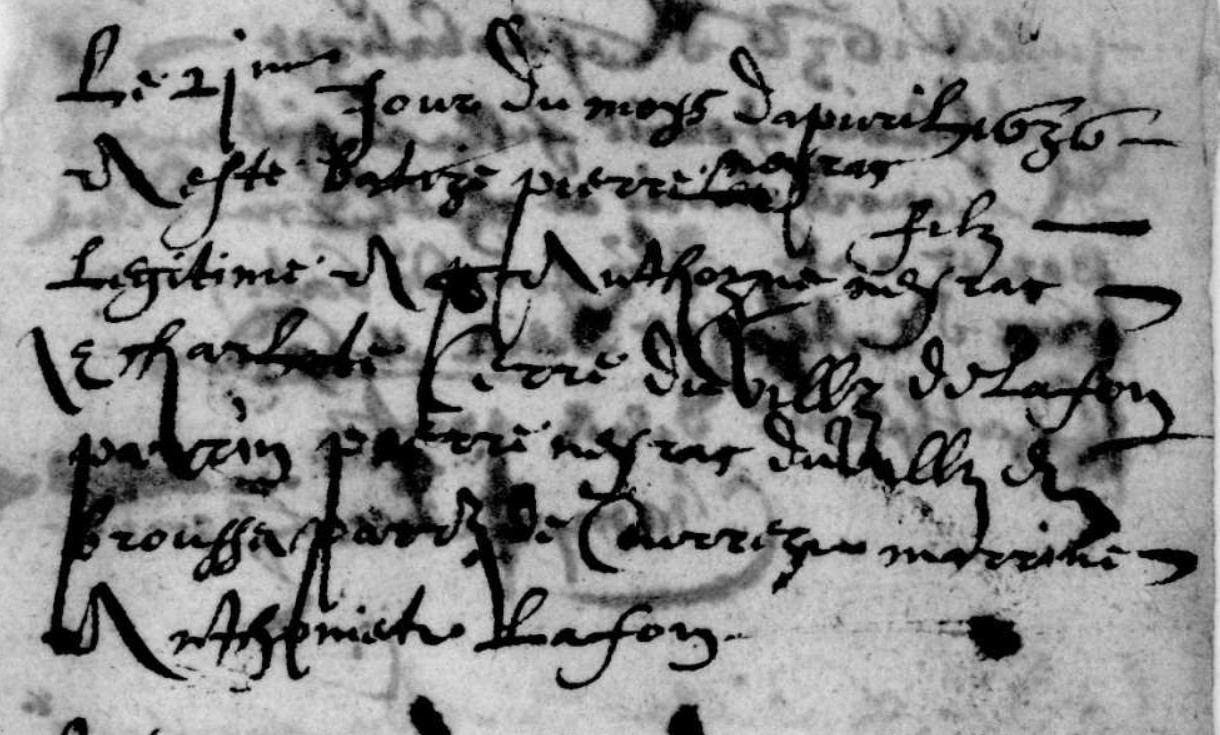 Le 2j^me Jour du moys dapuril 1636
A este batize pierre nesrac
filz
Legitime A Anthoyne nesrac
Et charlote Serre du village de Lafon
parrin pierre nesrac du village de
brousse parr de Courreze marrine
Anthoniete Lafon